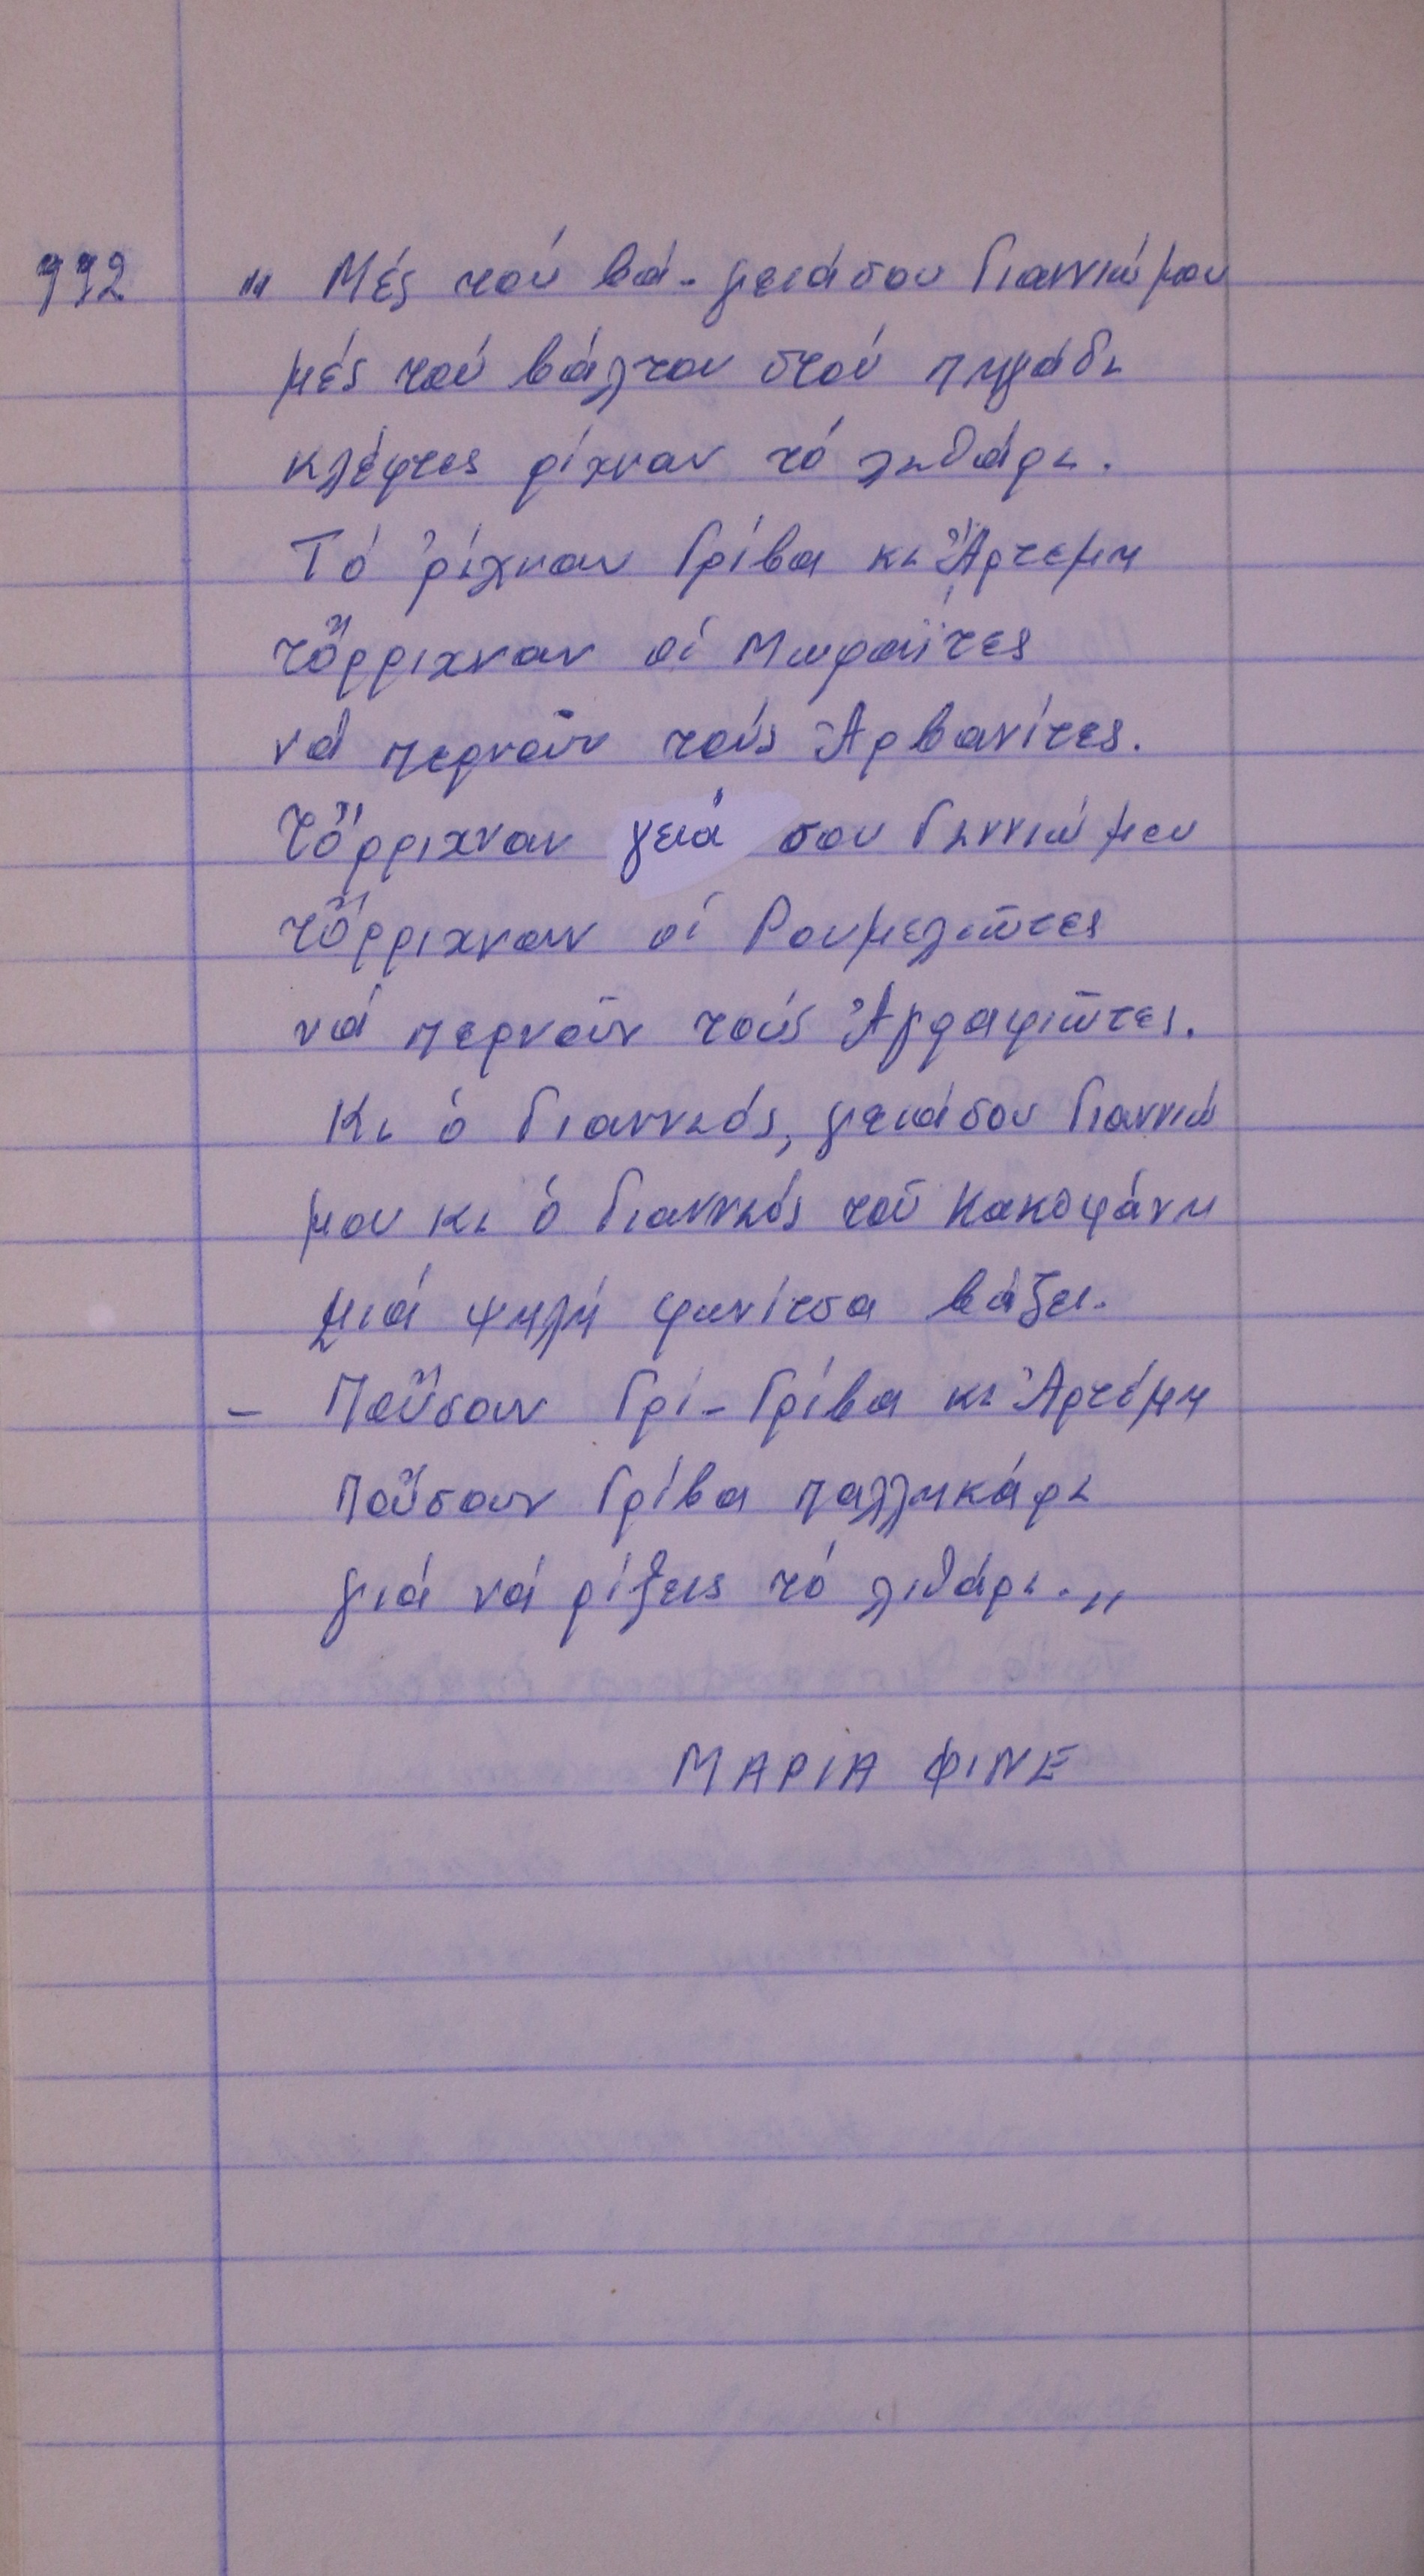 112 " Μές τού βά- γειάσου Γιαννιώ μου
μές τού βάλτου στού πηγάδι
κλέφτες ρίχναν τό λιθάρι.
Τό ῤίχναν Γρίβα κι Ἄρτεμη
τὄρριχναν οἱ Μωραΐτες
νά περνοῦν τούς Ἀρβανίτες.
Τὄρριχναν γειά σου Γιαννιώ μου
τὄρριχναν οἱ Ρουμελιῶτες
νά περνοῦν τούς Ἀγραφιῶτες.
Κι ὁ Γιαννιός, γειάσου Γιαννιώ
μου κι ὁ Γιαννιός τοῦ Κακοφάνη
μιά ψηλή φωνίτσα βάζει.
- Ποὖσαν Γρί- Γρίβα κι Ἀρτέμη
ποὖσουν Γρίβα παλληκάρι
γιά νά ρίξεις τό λιθάρι. "
ΜΑΡΙΑ ΦΙΝΕ